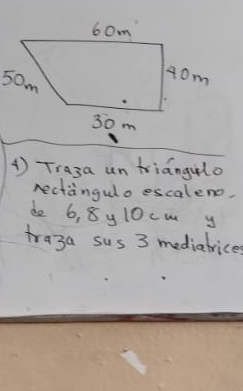 60m
50m
40m
30 m
4) Traza un triángulo
rectángulo escaleno.
de 6, 8 y 10 cm y
traza sus 3 mediatrices